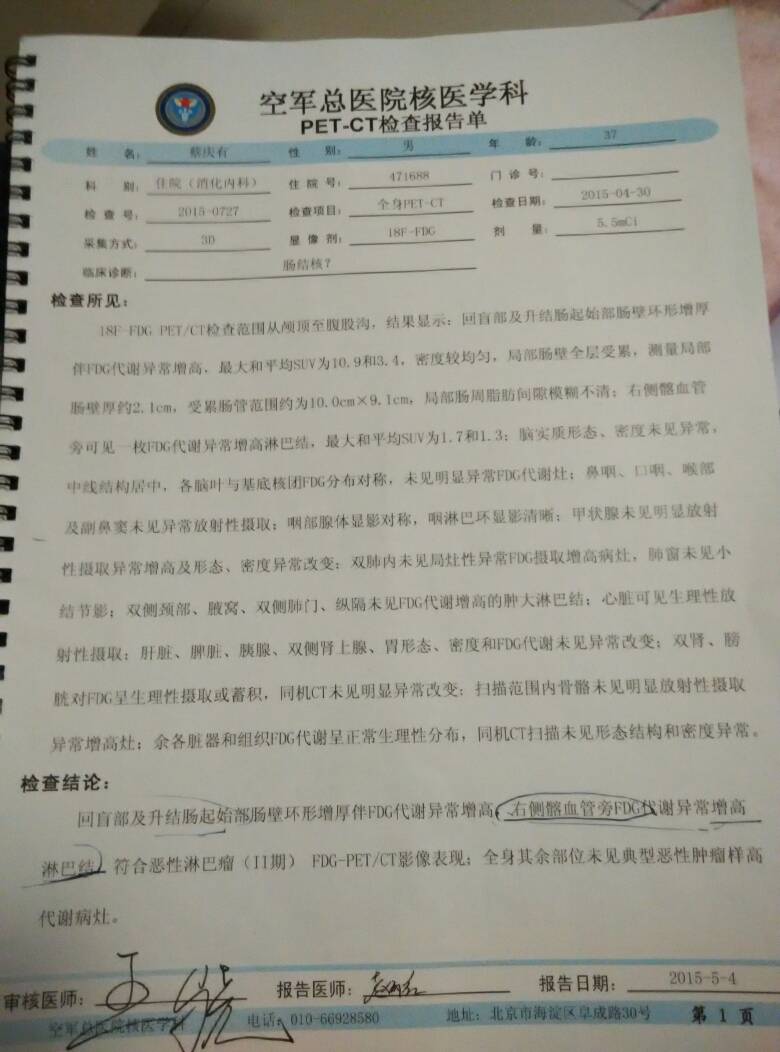 空军总医院核医学科
PET-CT检查报告单
姓 名: 蔡庆有 性 别: 男 年 龄: 37
科 别: 住院（消化内科） 住 院 号: 471688 门 诊 号:
检 查 号: 2015-0727 检查项目: 全身PET-CT 检查日期: 2015-04-30
采集方式: 3D 显 像 剂: 18F-FDG 剂 量: 5.5mCi
临床诊断: 肠结核？
检查所见:
18F-FDG PET/CT检查范围从颅顶至腹股沟，结果显示：回盲部及升结肠起始部肠壁环形增厚
伴FDG代谢异常增高，最大和平均SUV为10.9和3.4，密度较均匀，局部肠壁全层受累，测量局部
肠壁厚约2.1cm，受累肠管范围约为10.0cm×9.1cm，局部肠周脂肪间隙模糊不清；右侧髂血管
旁可见一枚FDG代谢异常增高淋巴结，最大和平均SUV为1.7和1.3；脑实质形态、密度未见异常，
中线结构居中，各脑叶与基底核团FDG分布对称，未见明显异常FDG代谢灶；鼻咽、口咽、喉部
及副鼻窦未见异常放射性摄取；咽部腺体显影对称，咽淋巴环显影清晰；甲状腺未见明显放射
性摄取异常增高及形态、密度异常改变；双肺内未见局灶性异常FDG摄取增高病灶，肺窗未见小
结节影；双侧颈部、腋窝、双侧肺门、纵隔未见FDG代谢增高的肿大淋巴结；心脏可见生理性放
射性摄取；肝脏、脾脏、胰腺、双侧肾上腺、胃形态、密度和FDG代谢未见异常改变；双肾、膀
胱对FDG呈生理性摄取或蓄积，同机CT未见明显异常改变；扫描范围内骨骼未见明显放射性摄取
异常增高灶；余各脏器和组织FDG代谢呈正常生理性分布，同机CT扫描未见形态结构和密度异常。
检查结论:
回盲部及升结肠起始部肠壁环形增厚伴FDG代谢异常增高，右侧髂血管旁FDG代谢异常增高
淋巴结，符合恶性淋巴瘤（II期） FDG-PET/CT影像表现；全身其余部位未见典型恶性肿瘤样高
代谢病灶。
审核医师: 报告医师: 报告日期: 2015-5-4
空军总医院核医学科 电话: 010-66928580 地址: 北京市海淀区阜成路30号 第 1 页